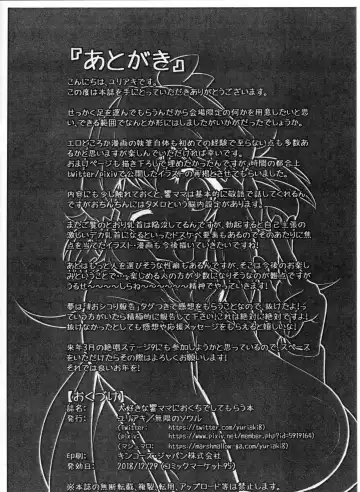 『あとがき』
こんにちは、ユリアキです。
この度は本誌を手にとっていただきありがとうございます。
せっかく足を運んでもらうんだから会場限定の何かを用意したいと思
い、できる範囲でなんとか形にはしましたがいかがだったでしょうか。
エロどころか漫画の執筆自体も初めての経験で至らない点も多数あ
るかと思いますが楽しんでいただければ幸いです。
おまけページも描き下ろしで埋めたかったんですが、時間の都合上
twitter/pixivで公開したイラストの再掲とさせてもらいました。
内容にも少し触れておくと、響ママは基本的に敬語で話してくれるん
ですがおちんちんにはタメ口という脳内設定があります。
またご覧のとおり乳首は陥没してるんですが、勃起すると自己主張の
激しいデカ乳首になるといったドスケベ要素もあるのでそのあたりに焦
点を当てたイラスト・漫画も今後描いていきたいですね！
あとはもっと人を選びそうな性癖もあるんですが、そこは今後のお楽し
みということで…っ
夢は「#おシコり報告」タグつきで感想をもらうことなので、抜けたよ！っ
ていう方がいたら積極的に報告して下さい！これは絶対に絶対ですよ！
抜けなかったとしても感想や応援メッセージをもらえると嬉しいな！
来年3月の絶唱ステージ9にも参加しようかと思っているので、スペース
をいただけたらその際はよろしくお願いします！
それでは良いお年を！
【おくづけ】
誌名： 大好きな響ママにおくちでしてもらう本
発行： ユリアキ／無限のソウル
（twitter: https://twitter.com/yuriaki8）
（pixiv: https://www.pixiv.net/member.php?id=5919164）
（マシュマロ: https://marshmallow-qa.com/yuriaki8）
印刷： キンコーズ・ジャパン株式会社
発効日： 2018/12/29（コミックマーケット95）
※本誌の無断転載、複製、転用、アップロード等は禁止します。